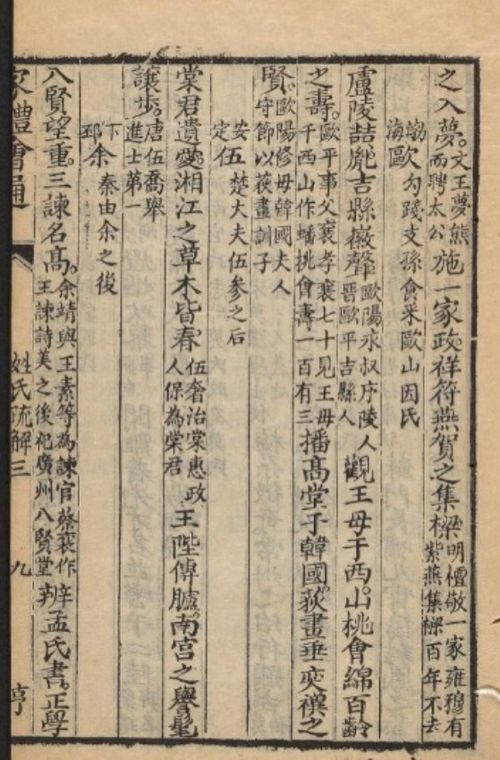 之入夢。文王夢熊而聘太公施一家政祥符燕賀之集樑明檀敬一家雍穆有紫燕集樑百年不去
渤海歐勾踐支孫食采歐山因氏
盧陵喆龐吉縣徽聲歐陽永叔序陵人晉歐平吉縣人觀王母于西山桃會綿百齡
之壽。歐平事父褒孝褒七十見王母于西山作蟠桃會壽一百有三播髙堂于韓國。荻畫垂奕禩之
賢。歐陽修母韓國夫人守節以荻畫訓子
安定伍楚大夫伍参之后
棠君遺愛。湘江之草木皆春伍奢治棠惠政人保為棠君王陛傳臚。南宮之譽髦
讓步。唐伍喬舉進士第一
下邳余秦由余之後
八賢望重。三諫名髙。余靖與王素等為諫官蔡襄作王諫詩美之後祀廣州八賢堂辨孟氏書。正學
家禮會通 姓氏疏解三 九 亨